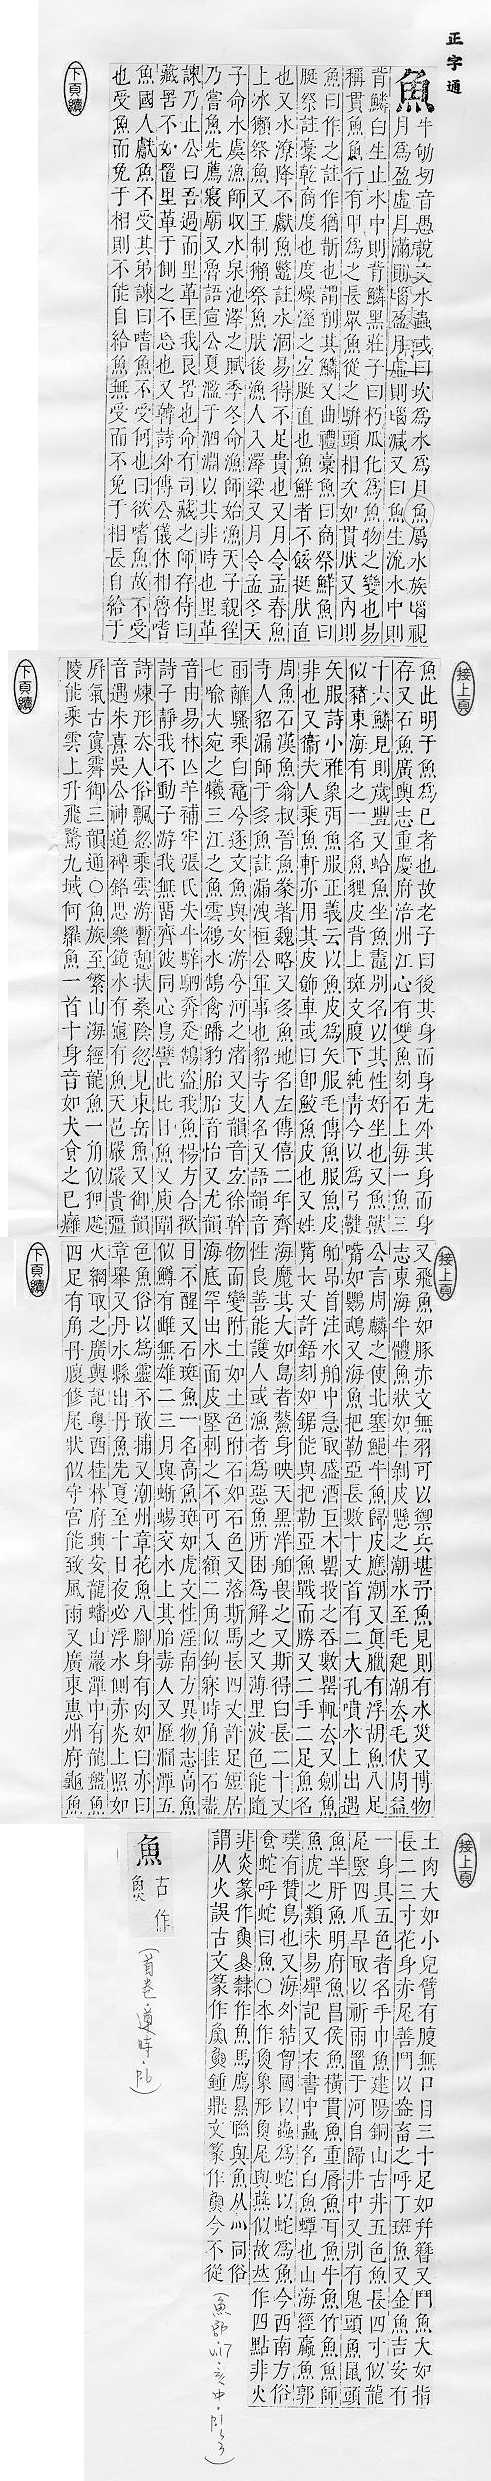 正字通
魚
牛劬切音愚說文水蟲或曰坎為水為月魚屬水族腦視
月為盈虛月滿則腦盈月虛則腦減又曰魚生流水中則
背鱗白生止水中則背鱗黑莊子曰朽瓜化為魚物之變也易
稱貫魚魚行有甲為之長眾魚從之駢頭相次如貫肰又內則
魚曰作之註作猶斮也謂削其鱗又曲禮稾魚曰商祭鮮魚曰
脡祭註稾乾商度也度燥溼之宜脡直也魚鮮者不餒挺肰直
也又水潦降不獻魚鼈註水涸易得不足貴也又月令孟春魚
上冰獺祭魚又王制獺祭魚肰後漁人入澤梁又月令孟冬天
子命水虞漁師收水泉池澤之賦季冬命漁師始漁天子親徃
乃嘗魚先薦寢廟又魯語宣公夏濫于泗淵以其非時也里革
諫乃止公曰吾過而里革匡我良罟也命有司藏之師存侍曰
藏罟不如寘里革于側之不忘也又韓詩外傳公儀休相魯嗜
魚國人獻魚不受其弟諫曰嗜魚不受何也曰欲嗜魚故不受
也受魚而免于相則不能自給魚無受而不免于相長自給于
下頁續
接上頁
魚此明于魚為己者也故老子曰後其身而身先外其身而身
存又石魚廣輿志重慶府涪州江心有雙魚刻石上每一魚三
十六鱗見則歲豐又蛤魚坐魚鼃別名以其性好坐也又魚獸
似豬東海有之一名魚貍皮背上斑文腹下純青今以為弓鞬
矢服詩小雅象弭魚服正義云以魚皮為矢服毛傳魚服魚皮
非也又衞夫人乘魚軒亦用其皮飾車或曰卽鮫魚皮也又姓
周魚石漢魚翁叔晉魚豢著魏略又多魚地名左傳僖二年齊
寺人貂漏師于多魚註漏洩桓公軍事也貂寺人名又語韻音
雨離騷乘白黿兮逐文魚與女游兮河之渚又支韻音宜徐幹
七喻大宛之犧三江之魚雲鶬水鵠禽蹯豹胎胎音怡又尤韻
音由易林亾羊補牢張氏失牛騂駠奔走鵠盜我魚楊方合歡
詩子靜我不動子游我無畱齊彼同心鳥譬此比目魚又庚韻
詩煉形厺人俗飄忽乘雲游暫憩扶桑陰忽見東岳魚又御韻
音遇朱熹吳公神道碑銘思樂鏡水有龜有魚天邑嚴嚴貴彊
屛氣古寘霽御三韻通○魚族至繁山海經龍魚一角似鯉處
陵能乘雲上升飛騖九域何羅魚一首十身音如犬食之已癰
下頁續
接上頁
又飛魚如豚赤文無羽可以禦兵堪㺹魚見則有水災又博物
志東海半體魚狀如牛剝皮懸之潮水至毛起潮厺毛伏周益
公言周麟之使北塞鯤牛魚歸皮應潮又眞臘有浮胡魚八足
嘴如鸚鵡又海魚把勒亞長數十丈首有二大孔噴水上出遇
舶昂首注水舶中急取盛酒巨木罌投之吞數罌輒厺又劍魚
觜長丈許鋙刻如鋸能與把勒亞魚戰而勝又二手二足魚名
海魔其大如島者鰲身映天黑洋舶㠯之又斯得白長二十丈
性良善能護人或漁者為惡魚所困為解之又薄里波色能隨
物而變附土如土色附石如石色又落斯馬長四丈許足短居
海底罕出水面皮堅刺之不可入額二角似鉤寐時角挂石盡
日不醒又石斑魚一名高魚斑如虎文性淫南方異物志高魚
似鱒有雌無雄二三月與蜥蜴交水上其胎毒人又歷漏潭五
色魚俗以為靈不敢捕又潮州章花魚八腳身有肉如曰亦曰
章舉又丹水縣出丹魚先夏至十日夜必浮水側赤炎上照如
火網取之廣輿記粵西桂林府興安龍蟠山巖潭中有龍盤魚
四足有角丹腹修尾狀似守宮能致風雨又廣東惠州府龜魚
下頁續
接上頁
土肉大如小兒臂有腹無口目三十足如幷簪又鬥魚大如指
長二三寸花身赤尾善鬥以盎畜之呼丁斑魚又金魚吉安有
一身具五色者名手巾魚建陽銅山古井五色魚長四寸似龍
尾豎四爪旱取以祈雨置于河自歸井中又別有鬼頭魚鼠頭
魚羊肝魚明府魚昌侯魚橫貫魚重脣魚耳魚牛魚竹魚魚師
魚虎之類未易殫記又衣書中蟲名白魚蟫也山海經蠃魚郭
璞有贊鳥也又海外結匈國以蟲為蛇以蛇為魚今西南方俗
食蛇呼蛇曰魚○本作𤋳象形𤋳尾與燕似故从作四點非火
非炎篆作𤋳隸作魚馬鷹㬎聯與魚从灬同俗
謂从火誤古文篆作鐘鼎文篆作今不從
(魚部.亥中.)
魚 古作
(首卷.遵時.P.6)